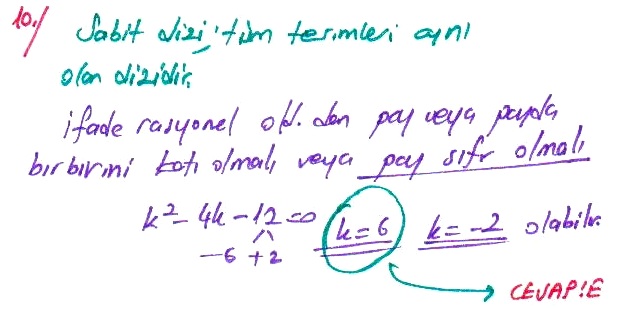 10.) Sabit dizi; tüm terimleri aynı
olan dizidir.
ifade rasyonel old. dan pay veya payda
birbirini katı olmalı veya pay sıfır olmalı
k²-4k-12=0 k=6 k=-2 olabilir.
-6 +2
CEVAP:E